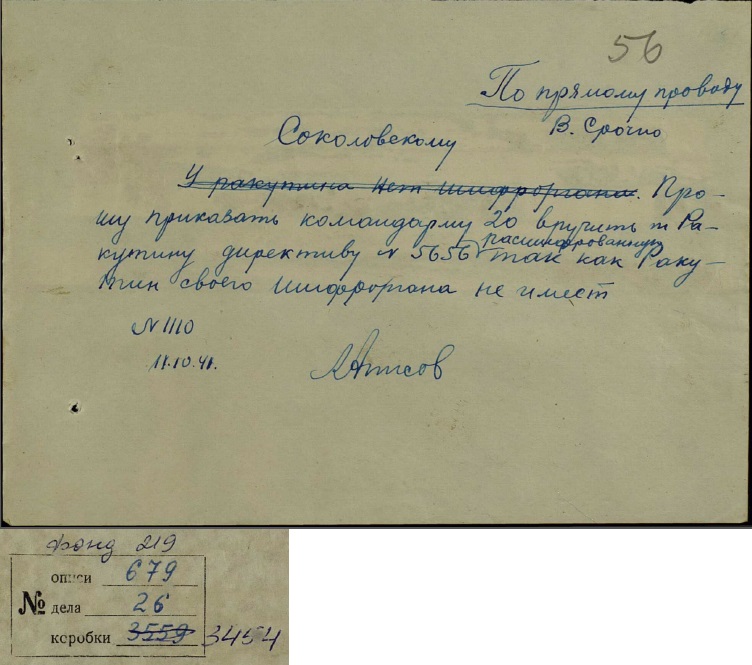 56
По прямому проводу
В. Срочно
Соколовскому
У ракутина нет шифроргана. Про-
шу приказать командарму 20 вручить т Ра-
расшифрованную
кутину директиву № 5656 так как Раку-
тин своего шифроргана не имеет
№ 1110
11.10.41.
Анисов
Фонд 219
описи 679
№ дела 26
коробки 3559 3454